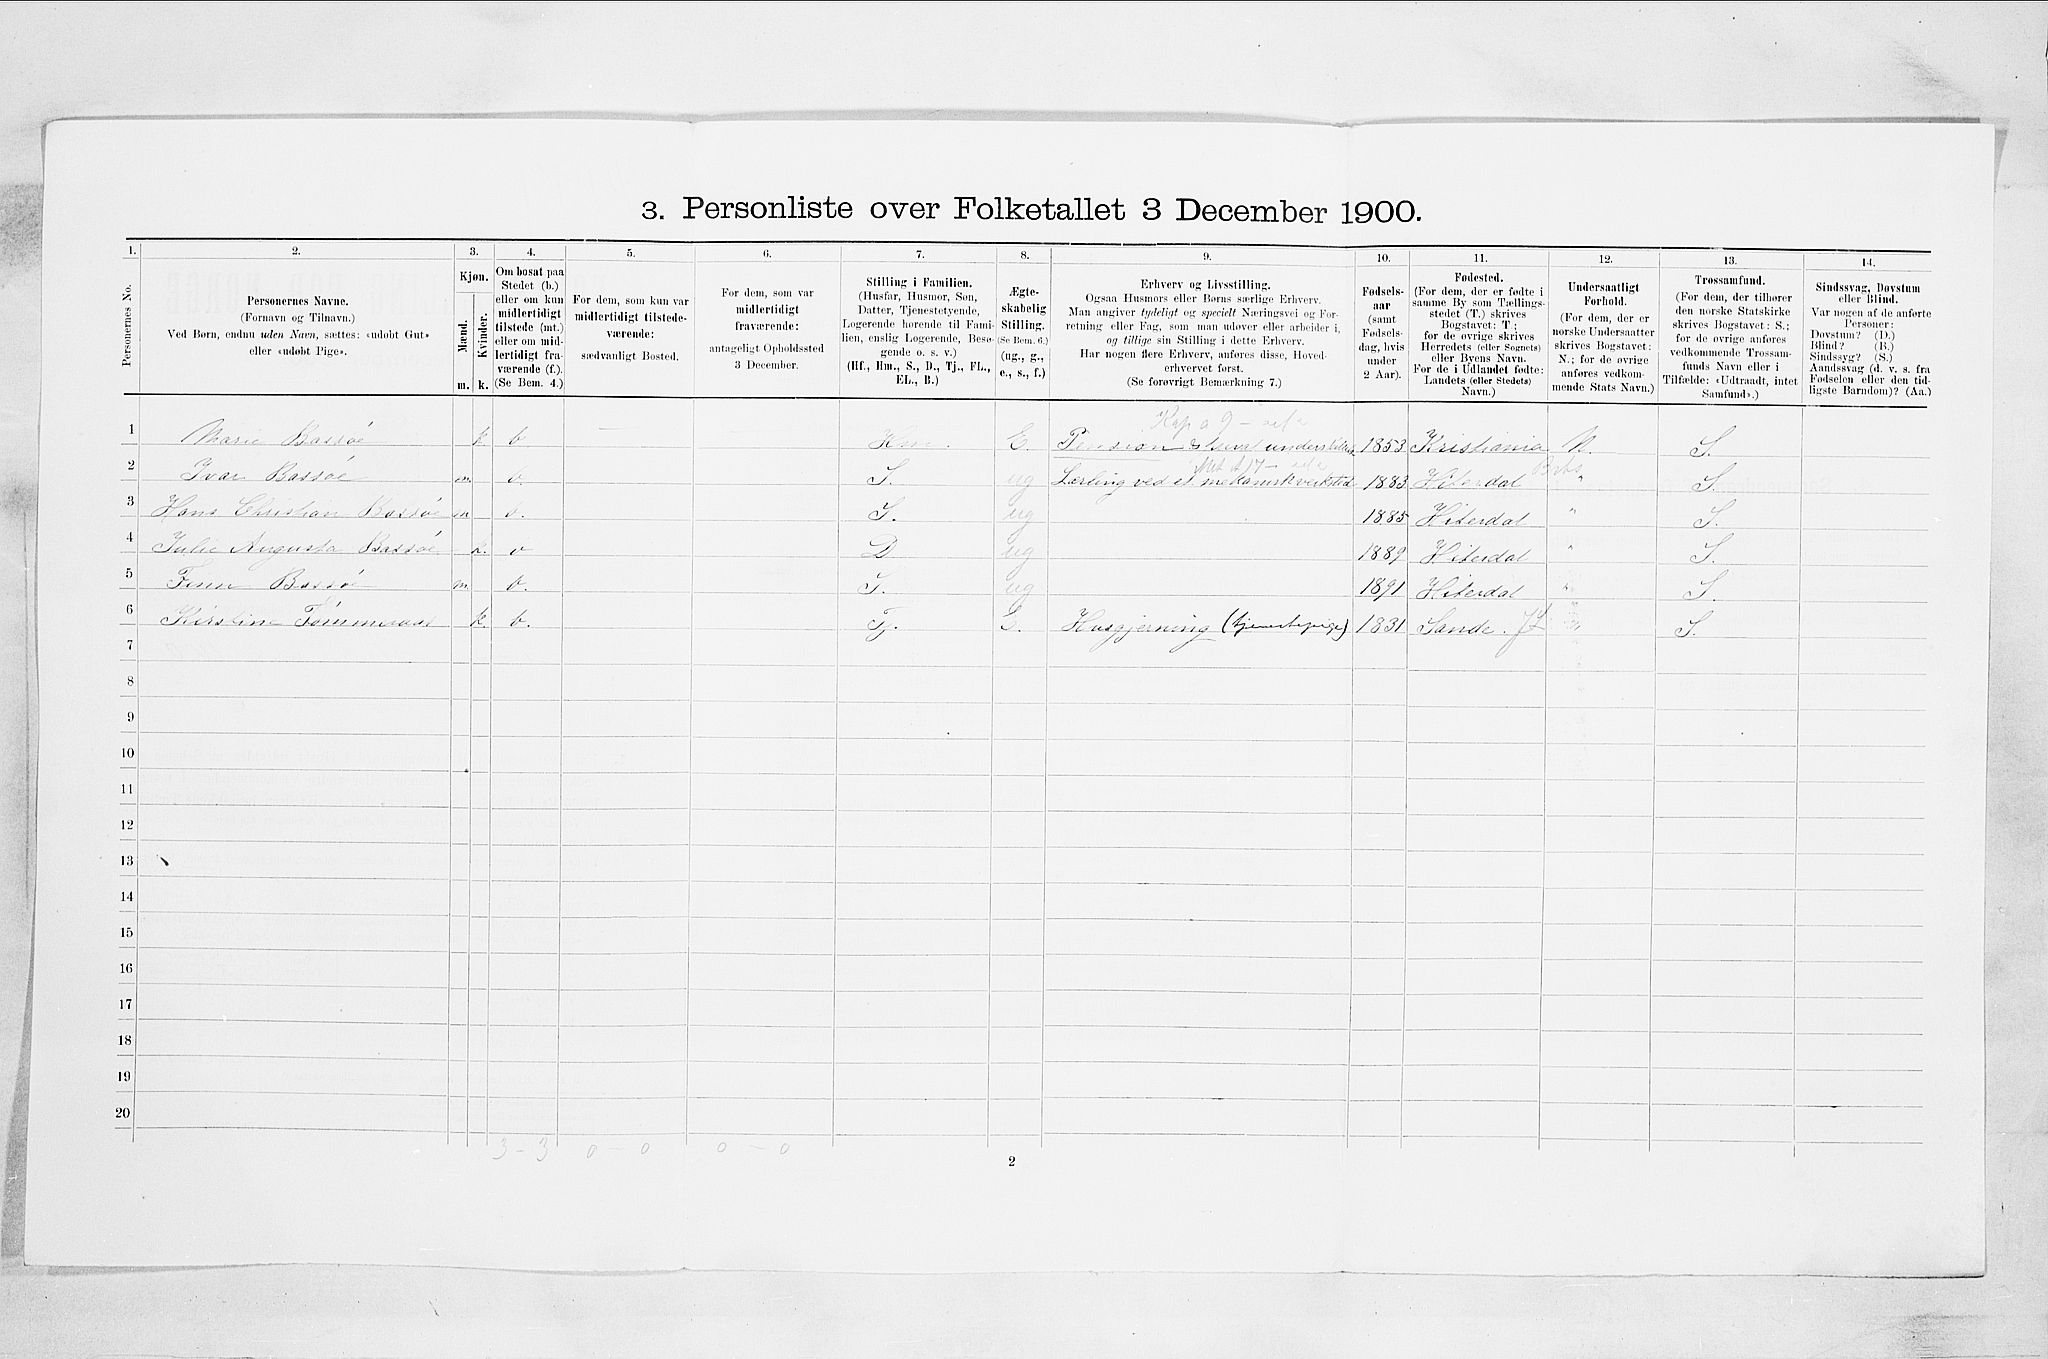 3. Personliste over Folketallet 3 December 1900.
1. 2. 3. 4. 5. 6. 7. 8. 9. 10. 11. 12. 13. 14.
Personernes No.
Personernes Navne.
(Fornavn og Tilnavn.)
Ved Børn, endnu uden Navn, sættes: «udøbt Gut»
eller «udøbt Pige».
Kjøn.
Mænd.
Kvinder.
m. k.
Om bosat paa
Stedet (b.)
eller om kun
midlertidigt
tilstede (mt.)
eller om mid-
lertidigt fra-
værende (f.).
(Se Bem. 4.)
For dem, som kun var
midlertidigt tilstede-
værende:
sædvanligt Bosted.
For dem, som var
midlertidigt
fraværende:
antageligt Opholdssted
3 December.
Stilling i Familien.
(Husfar, Husmor, Søn,
Datter, Tjenestetyende,
Logerende hørende til Fami-
lien, enslig Logerende, Besø-
gende o. s. v.)
(Hf., Hm., S., D., Tj., FL.,
EL., B.)
Ægte-
skabelig
Stilling.
(Se Bem. 6.)
(ug., g.,
e., s., f.)
Erhverv og Livsstilling.
Ogsaa Husmors eller Børns særlige Erhverv.
Man angiver tydeligt og specielt Næringsvei og For-
retning eller Fag, som man udøver eller arbeider i,
og tillige sin Stilling i dette Erhverv.
Har nogen flere Erhverv, anføres disse, Hoved-
erhvervet først.
(Se forøvrigt Bemærkning 7.)
Fødsels-
aar
(samt
Fødsels-
dag, hvis
under
2 Aar).
Fødested.
(For dem, der er fødte i
samme By som Tællings-
stedet (T.) skrives
Bogstavet: T;
for de øvrige skrives
Herredets (eller Sognets)
eller Byens Navn.
For de i Udlandet fødte:
Landets (eller Stedets)
Navn.)
Undersaatligt
Forhold.
(For dem, der er
norske Undersaatter
skrives Bogstavet:
N.; for de øvrige
anføres vedkom-
mende Stats Navn.)
Trossamfund.
(For dem, der tilhører
den norske Statskirke
skrives Bogstavet: S.;
for de øvrige anføres
vedkommende Trossam-
funds Navn eller i
Tilfælde: «Udtraadt, intet
Samfund».)
Sindssvag, Døvstum
eller Blind.
Var nogen af de anførte
Personer:
Døvstum? (D.)
Blind? (B.)
Sindssyg? (S.)
Aandssvag (d. v. s. fra
Fødselen eller den tid-
ligste Barndom)? (Aa.)
1 Marie Bassøe k b. Hm. E. Pension 1853 Kristiania N. S.
2 Ivar Bassøe m b. S. ug Lærling ved et mekanisk verksted 1883 Hiterdal " S.
3 Hans Christian Bassøe m b. S. ug 1885 Hiterdal " S.
4 Julie Augusta Bassøe k. b D ug 1889 Hiterdal " S.
5 Finn Bassøe m. b. S. ug 1891 Hiterdal " S.
6 Kirstine Tømmeraas k. b. Tj. E. Husgjerning (tjenestepige) 1831 Sande. " S.
7
8
9
10
11
12
13
14
15
16
17
18
19
20
3 - 3 0 - 0 0 - 0
2